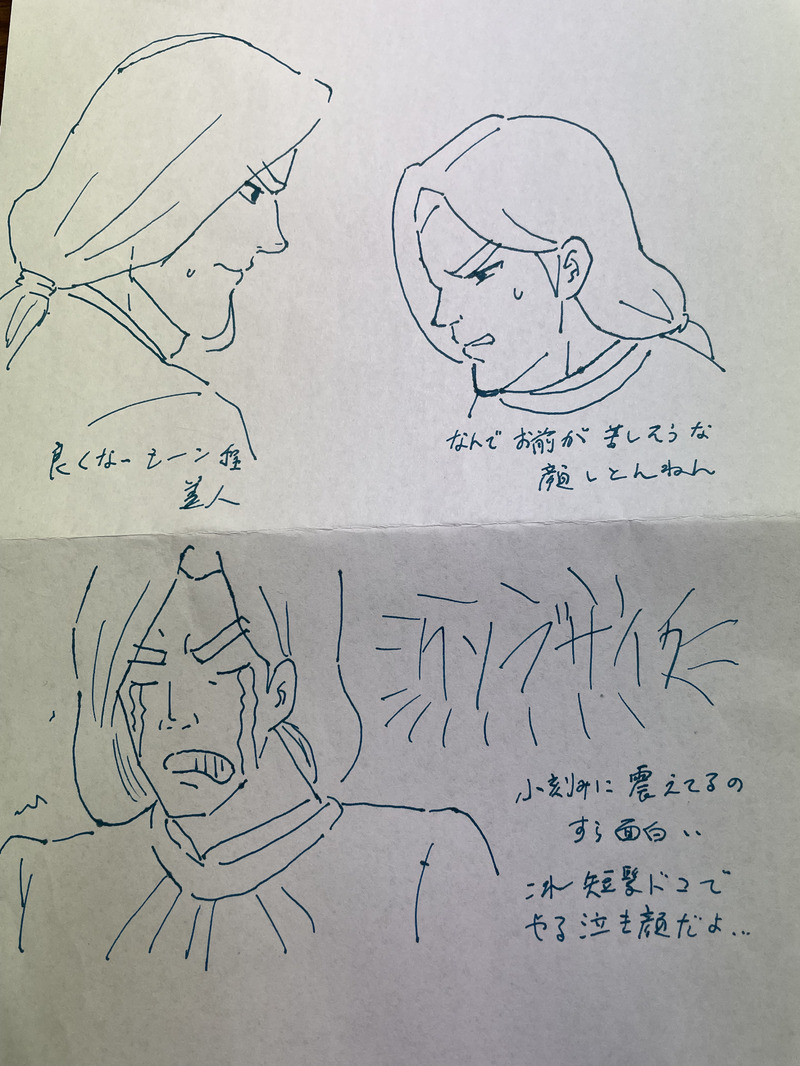 良くなーモーン程
美人
なんでお前が苦しそうな
顔しとんねん
クソブサイク
小刻みに震えてるの
すら面白い
これ短髪ドコで
やる泣き顔だよ…